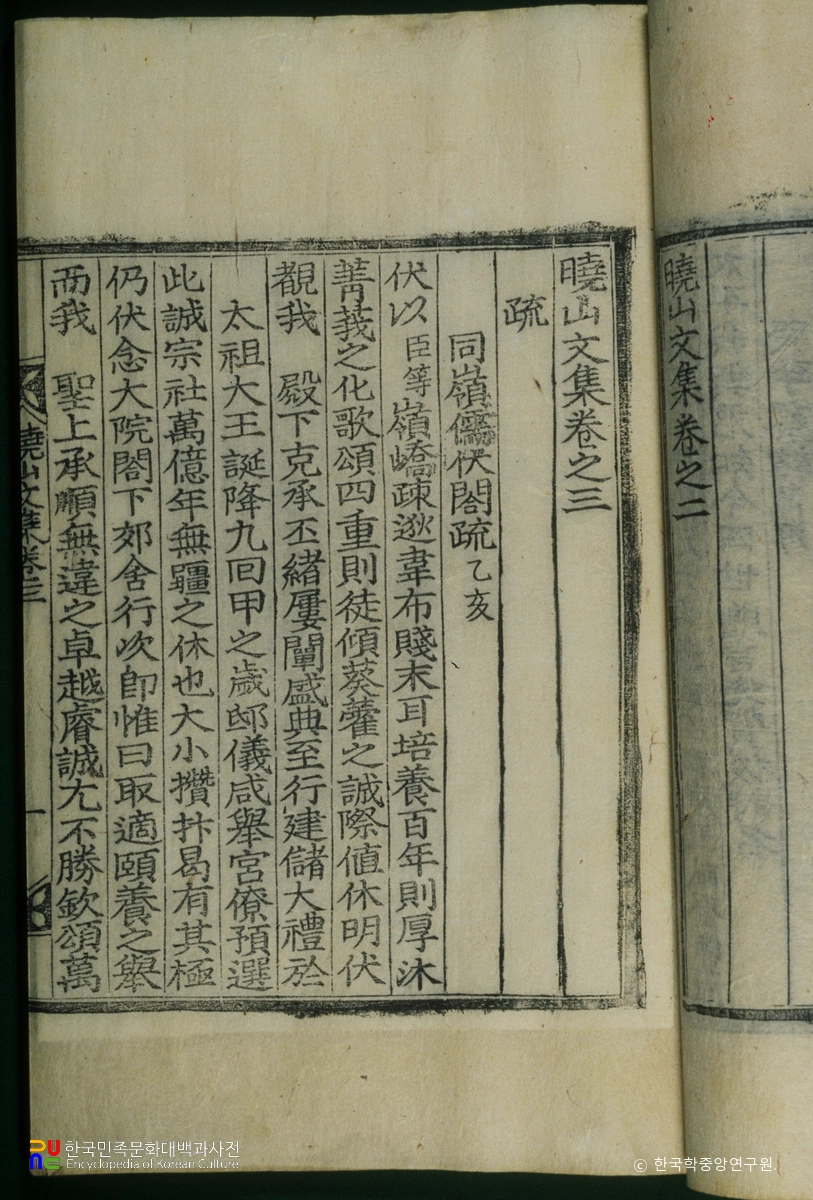 曉山文集卷之二
曉山文集卷之三
疏
同嶺儒伏閤疏 乙亥
伏以臣等嶺嶠疎逖韋布賤末耳培養百年則厚沐
菁莪之化歌頌四重則徒傾葵藿之誠際値休明伏
覩我 殿下克承丕緖屢闡盛典至行建儲大禮於
太祖大王誕降九回甲之歲邸儀咸擧宮僚預選
此誠宗社萬億年無疆之休也大小攢抃曷有其極
仍伏念大院閤下郊舍行次卽惟曰取適頤養之擧
而我 聖上承順無違之卓越睿誠尤不勝欽頌萬
曉山文集卷三
一
한국민족문화대백과사전
Encyclopedia of Korean Culture
© 한국학중앙연구원.